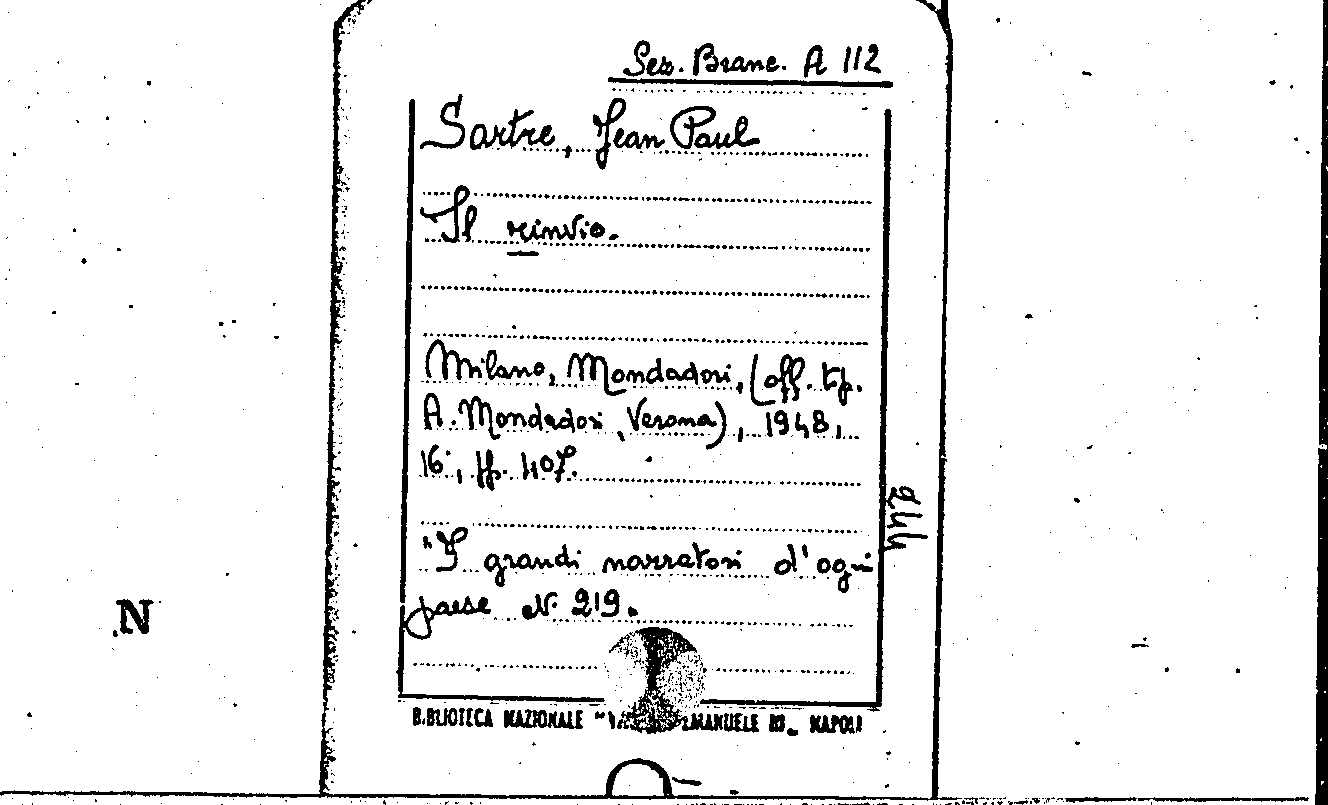 Sez. Branc. A 112
Sartre, Jean Paul
Il rinvio.
Milano, Mondadori, (off. tip.
A. Mondadori, Verona), 1948,
16°, pp. 407.
244
"I grandi narratori d'ogni
paese N. 219.
N
BIBLIOTECA NAZIONALE " EMANUELE III" NAPOLI